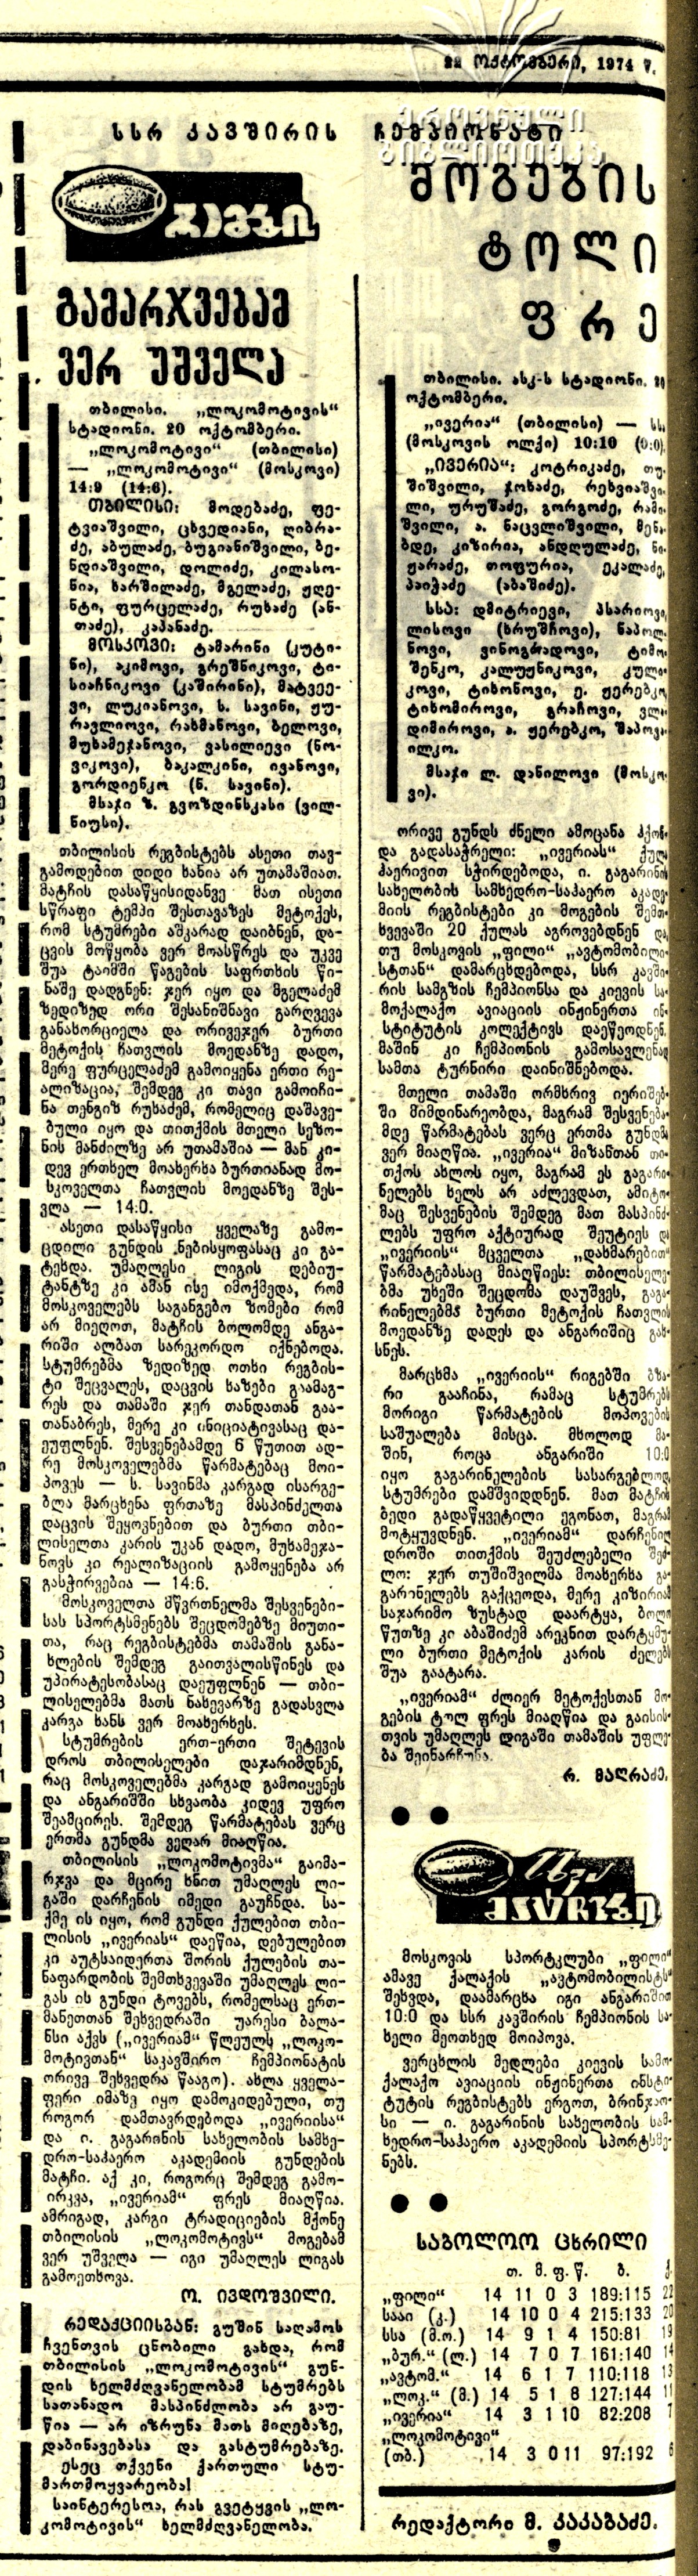 22 ოქტომბერი, 1974 წ.
ეროვნული
ბიბლიოთეკა
სსრ კავშირის ჩემპიონატი
რაგბი
გამარჯვებამ
ვერ უშველა
თბილისი. „ლოკომოტივის“
სტადიონი. 20 ოქტომბერი.
„ლოკომოტივი“ (თბილისი)
— „ლოკომოტივი“ (მოსკოვი)
14:9 (14:6).
თბილისი: მოდებაძე, ფე-
ტვიაშვილი, ცხვედიანი, ღიბრა-
ძე, აბულაძე, ბუგიანიშვილი, ბე-
ნდიაშვილი, დოლიძე, კილასო-
ნია, ხარშილაძე, მგელაძე, ჟღე-
ნტი, ფურცელაძე, რუხაძე (ან-
თაძე), კაპანაძე.
მოსკოვი: ტამარინი (კუტი-
ნი), აკიმოვი, გრეშნიკოვი, ტი-
სიაჩნიკოვი (კაშირინი), მატვეე-
ვი, ლუკიანოვი, ს. სავინი, ჟუ-
რავლიოვი, რახმანოვი, ბელოვი,
მუხამეჯანოვი, ვასილიევი (ნო-
ვიკოვი), ბაკალკინი, ივანოვი,
გორდიენკო (ნ. სავინი).
მსაჯი ზ. გვოზდინსკასი (ვილ-
ნიუსი).
თბილისის რეგბისტებს ასეთი თავ-
გამოდებით დიდი ხანია არ უთამაშიათ.
მატჩის დასაწყისიდანვე მათ ისეთი
სწრაფი ტემპი შესთავაზეს მეტოქეს,
რომ სტუმრები აშკარად დაიბნენ, და-
ცვის მოწყობა ვერ მოასწრეს და უკვე
შუა ტაიმში წაგების საფრთხის წი-
ნაშე დადგნენ: ჯერ იყო და მგელაძემ
ზედიზედ ორი შესანიშნავი გარღვევა
განახორციელა და ორივეჯერ ბურთი
მეტოქის ჩათვლის მოედანზე დადო,
მერე ფურცელაძემ გამოიყენა ერთი რე-
ალიზაცია, შემდეგ კი თავი გამოიჩი-
ნა თენგიზ რუხაძემ, რომელიც დაშავე-
ბული იყო და თითქმის მთელი სეზო-
ნის მანძილზე არ უთამაშია — მან კი-
დევ ერთხელ მოახერხა ბურთიანად მო-
სკოველთა ჩათვლის მოედანზე შეს-
ვლა — 14:0.
ასეთი დასაწყისი ყველაზე გამო-
ცდილი გუნდის ნებისყოფასაც კი გა-
ტეხდა. უმაღლესი ლიგის დებიუ-
ტანტზე კი ამან ისე იმოქმედა, რომ
მოსკოველებს საგანგებო ზომები რომ
არ მიეღოთ, მატჩის ბოლომდე ანგა-
რიში ალბათ სარეკორდო იქნებოდა.
სტუმრებმა ზედიზედ ოთხი რეგბის-
ტი შეცვალეს, დაცვის ხაზები გაამაგ-
რეს და თამაში ჯერ თანდათან გაა-
თანაბრეს, მერე კი ინიციატივასაც და-
ეუფლნენ. შესვენებამდე 6 წუთით ად-
რე მოსკოველებმა წარმატებაც მოი-
პოვეს — ს. სავინმა კარგად ისარგე-
ბლა მარცხენა ფრთაზე მასპინძელთა
დაცვის შეყოვნებით და ბურთი თბი-
ლისელთა კარის უკან დადო, მუხამეჯა-
ნოვს კი რეალიზაციის გამოყენება არ
გასჭირვებია — 14:6.
მოსკოველთა მწვრთნელმა შესვენები-
სას სპორტსმენებს შეცდომებზე მიუთი-
თა, რაც რეგბისტებმა თამაშის განა-
ხლების შემდეგ გაითვალისწინეს და
უპირატესობასაც დაეუფლნენ — თბი-
ლისელებმა მათს ნახევარზე გადასვლა
კარგა ხანს ვერ მოახერხეს.
სტუმრების ერთ-ერთი შეტევის
დროს თბილისელები დაჯარიმდნენ,
რაც მოსკოველებმა კარგად გამოიყენეს
და ანგარიშში სხვაობა კიდევ უფრო
შეამცირეს. შემდეგ წარმატებას ვერც
ერთმა გუნდმა ვეღარ მიაღწია.
თბილისის „ლოკომოტივმა“ გაიმა-
რჯვა და მცირე ხნით უმაღლეს ლი-
გაში დარჩენის იმედი გაუჩნდა. სა-
ქმე ის იყო, რომ გუნდი ქულებით თბი-
ლისის „ივერიას“ დაეწია, დებულებით
კი აუტსაიდერთა შორის ქულების თა-
ნაფარდობის შემთხვევაში უმაღლეს ლი-
გას ის გუნდი ტოვებს, რომელსაც ერთ-
მანეთთან შეხვედრაში უარესი ბალა-
ნსი აქვს („ივერიამ“ წლეულს „ლოკო-
მოტივთან“ საკავშირო ჩემპიონატის
ორივე შეხვედრა წააგო). ახლა ყველა-
ფერი იმაზე იყო დამოკიდებული, თუ
როგორ დამთავრდებოდა „ივერიისა“
და ი. გაგარინის სახელობის სამხე-
დრო-საჰაერო აკადემიის გუნდების
მატჩი. აქ კი, როგორც შემდეგ გამო-
ირკვა, „ივერიამ“ ფრეს მიაღწია.
ამრიგად, კარგი ტრადიციების მქონე
თბილისის „ლოკომოტივს“ მოგებამ
ვერ უშველა — იგი უმაღლეს ლიგას
გამოეთხოვა.
ო. ივდოშვილი.
რედაქციისგან: გუშინ საღამოს
ჩვენთვის ცნობილი გახდა, რომ
თბილისის „ლოკომოტივის“ გუნ-
დის ხელმძღვანელობამ სტუმრებს
სათანადო მასპინძლობა არ გაუ-
წია — არ იზრუნა მათს მიღებაზე,
დაბინავებასა და გასტუმრებაზე.
ესეც თქვენი ქართული სტუ-
მართმოყვარეობა!
საინტერესოა, რას გვეტყვის „ლო-
კომოტივის“ ხელმძღვანელობა.
მოგების
ტოლი
ფრე
თბილისი. ასკ-ს სტადიონი. 20
ოქტომბერი.
„ივერია“ (თბილისი) — სსა
(მოსკოვის ოლქი) 10:10 (0:0).
„ივერია“: კოტრიკაძე, თუ-
შიშვილი, ჯოხაძე, რეხვიაშვი-
ლი, ურუშაძე, გორგოძე, რამი-
შვილი, ა. ნაცვლიშვილი, მენა-
ბდე, კიზირია, ანდღულაძე, ნი-
ჟარაძე, თოფურია, ეკალაძე,
პაიჭაძე (აბაშიძე).
სსა: დმიტრიევი, პსარიოვი,
ლისოვი (ხრუშჩოვი), ნაპოლ-
ნოვი, ვინოგრადოვი, ტიმო-
შენკო, კალუჟნიკოვი, კული-
კოვი, ტიხონოვი, ე. ჟერებკო,
ტიხომიროვი, გრაჩოვი, ვლა-
დიმიროვი, ა. ჟერებკო, შაპოვა-
ილკო.
მსაჯი ლ. დანილოვი (მოსკო-
ვი).
ორივე გუნდს ძნელი ამოცანა ჰქონ-
და გადასაჭრელი: „ივერიას“ ქულა
ჰაერივით სჭირდებოდა, ი. გაგარინის
სახელობის სამხედრო-საჰაერო აკადე-
მიის რეგბისტები კი მოგების შემთ-
ხვევაში 20 ქულას აგროვებდნენ და
თუ მოსკოვის „ფილი“ „ავტომობილი-
სტთან“ დამარცხდებოდა, სსრ კავში-
რის სამგზის ჩემპიონსა და კიევის სა-
მოქალაქო ავიაციის ინჟინერთა ინ-
სტიტუტის კოლექტივს დაეწეოდნენ.
მაშინ კი ჩემპიონის გამოსავლენად
სამთა ტურნირი დაინიშნებოდა.
მთელი თამაში ორმხრივ იერიშებ-
ში მიმდინარეობდა, მაგრამ შესვენება-
მდე წარმატებას ვერც ერთმა გუნდმა
ვერ მიაღწია. „ივერია“ მიზანთან თი-
თქოს ახლოს იყო, მაგრამ ეს გაგარი-
ნელებს ხელს არ აძლევდათ, ამიტო-
მაც შესვენების შემდეგ მათ მასპინძ-
ლებს უფრო აქტიურად შეუტიეს და
„ივერიის“ მცველთა „დახმარებით“
წარმატებასაც მიაღწიეს: თბილისელე-
ბმა უხეში შეცდომა დაუშვეს, გაგა-
რინელებმა ბურთი მეტოქის ჩათვლის
მოედანზე დადეს და ანგარიშიც გახ-
სნეს.
მარცხმა „ივერიის“ რიგებში ბზა-
რი გააჩინა, რამაც სტუმრებს
მორიგი წარმატების მოპოვების
საშუალება მისცა. მხოლოდ მა-
შინ, როცა ანგარიში 10:0
იყო გაგარინელების სასარგებლოდ,
სტუმრები დამშვიდდნენ. მათ მატჩის
ბედი გადაწყვეტილი ეგონათ, მაგრამ
მოტყუვდნენ. „ივერიამ“ დარჩენილ
დროში თითქმის შეუძლებელი შეძ-
ლო: ჯერ თუშიშვილმა მოახერხა გა-
გარინელებს გაქცეოდა, მერე კიზირიამ
საჯარიმო ზუსტად დაარტყა, ბოლო
წუთზე კი აბაშიძემ არეკნით დარტყმუ-
ლი ბურთი მეტოქის კარის ძელებს
შუა გაატარა.
„ივერიამ“ ძლიერ მეტოქესთან მო-
გების ტოლ ფრეს მიაღწია და გაისის-
თვის უმაღლეს ლიგაში თამაშის უფლე-
ბა შეინარჩუნა.
რ. მაღრაძე.
სხვა
მატჩები
მოსკოვის სპორტკლუბი „ფილი“
ამავე ქალაქის „ავტომობილისტს“
შეხვდა, დაამარცხა იგი ანგარიშით
10:0 და სსრ კავშირის ჩემპიონის სა-
ხელი მეოთხედ მოიპოვა.
ვერცხლის მედლები კიევის სამო-
ქალაქო ავიაციის ინჟინერთა ინსტი-
ტუტის რეგბისტებს ერგოთ, ბრინჯაო-
სი — ი. გაგარინის სახელობის სამ-
ხედრო-საჰაერო აკადემიის სპორტსმე-
ნებს.
საბოლოო ცხრილი
თ. მ. ფ. წ. ბ. ქ.
„ფილი“ 14 11 0 3 189:115 22
სააი (კ.) 14 10 0 4 215:133 20
სსა (მ.ო.) 14 9 1 4 150:81 19
„ბურ.“ (ლ.) 14 7 0 7 161:140 14
„ავტომ.“ 14 6 1 7 110:118 13
„ლოკ.“ (მ.) 14 5 1 8 127:144 11
„ივერია“ 14 3 1 10 82:208 7
„ლოკომოტივი“
(თბ.) 14 3 0 11 97:192 6
რედაქტორი მ. კაკაბაძე.